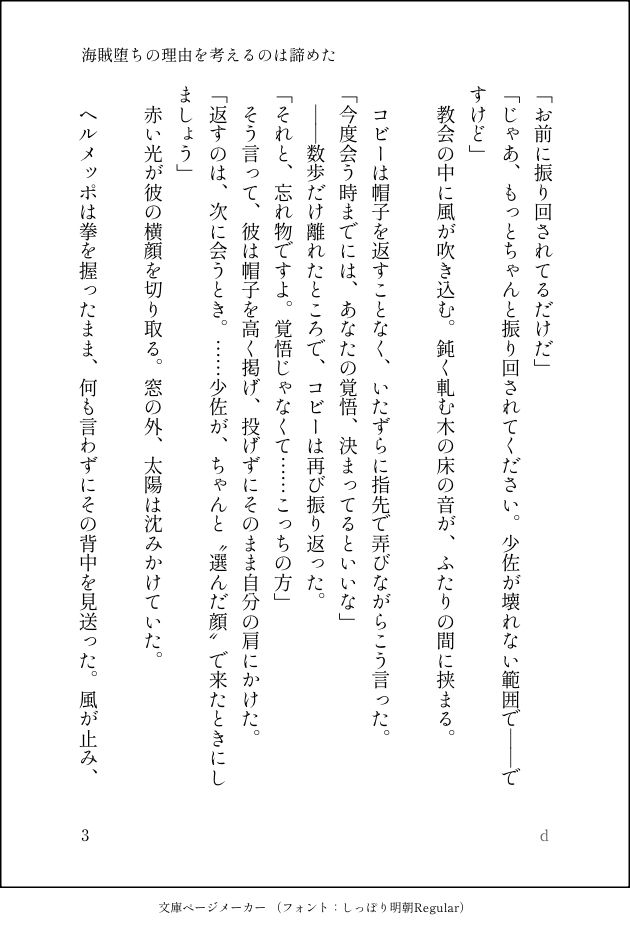 海賊堕ちの理由を考えるのは諦めた
「お前に振り回されてるだけだ」
「じゃあ、もっとちゃんと振り回されてください。少佐が壊れない範囲で――で
すけど」
教会の中に風が吹き込む。鈍く軋む木の床の音が、ふたりの間に挟まる。
コビーは帽子を返すことなく、いたずらに指先で弄びながらこう言った。
「今度会う時までには、あなたの覚悟、決まってるといいな」
――数歩だけ離れたところで、コビーは再び振り返った。
「それと、忘れ物ですよ。覚悟じゃなくて……こっちの方」
そう言って、彼は帽子を高く掲げ、投げずにそのまま自分の肩にかけた。
「返すのは、次に会うとき。……少佐が、ちゃんと〝選んだ顔〟で来たときにし
ましょう」
赤い光が彼の横顔を切り取る。窓の外、太陽は沈みかけていた。
ヘルメッポは拳を握ったまま、何も言わずにその背中を見送った。風が止み、
3
d
文庫ページメーカー（フォント：しっぽり明朝Regular）